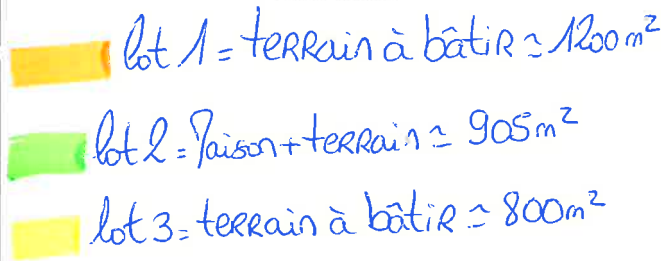 lot 1 = terrain à bâtir ≃ 1200 m²
lot 2 = Maison + terrain ≃ 905 m²
lot 3 = terrain à bâtir ≃ 800 m²